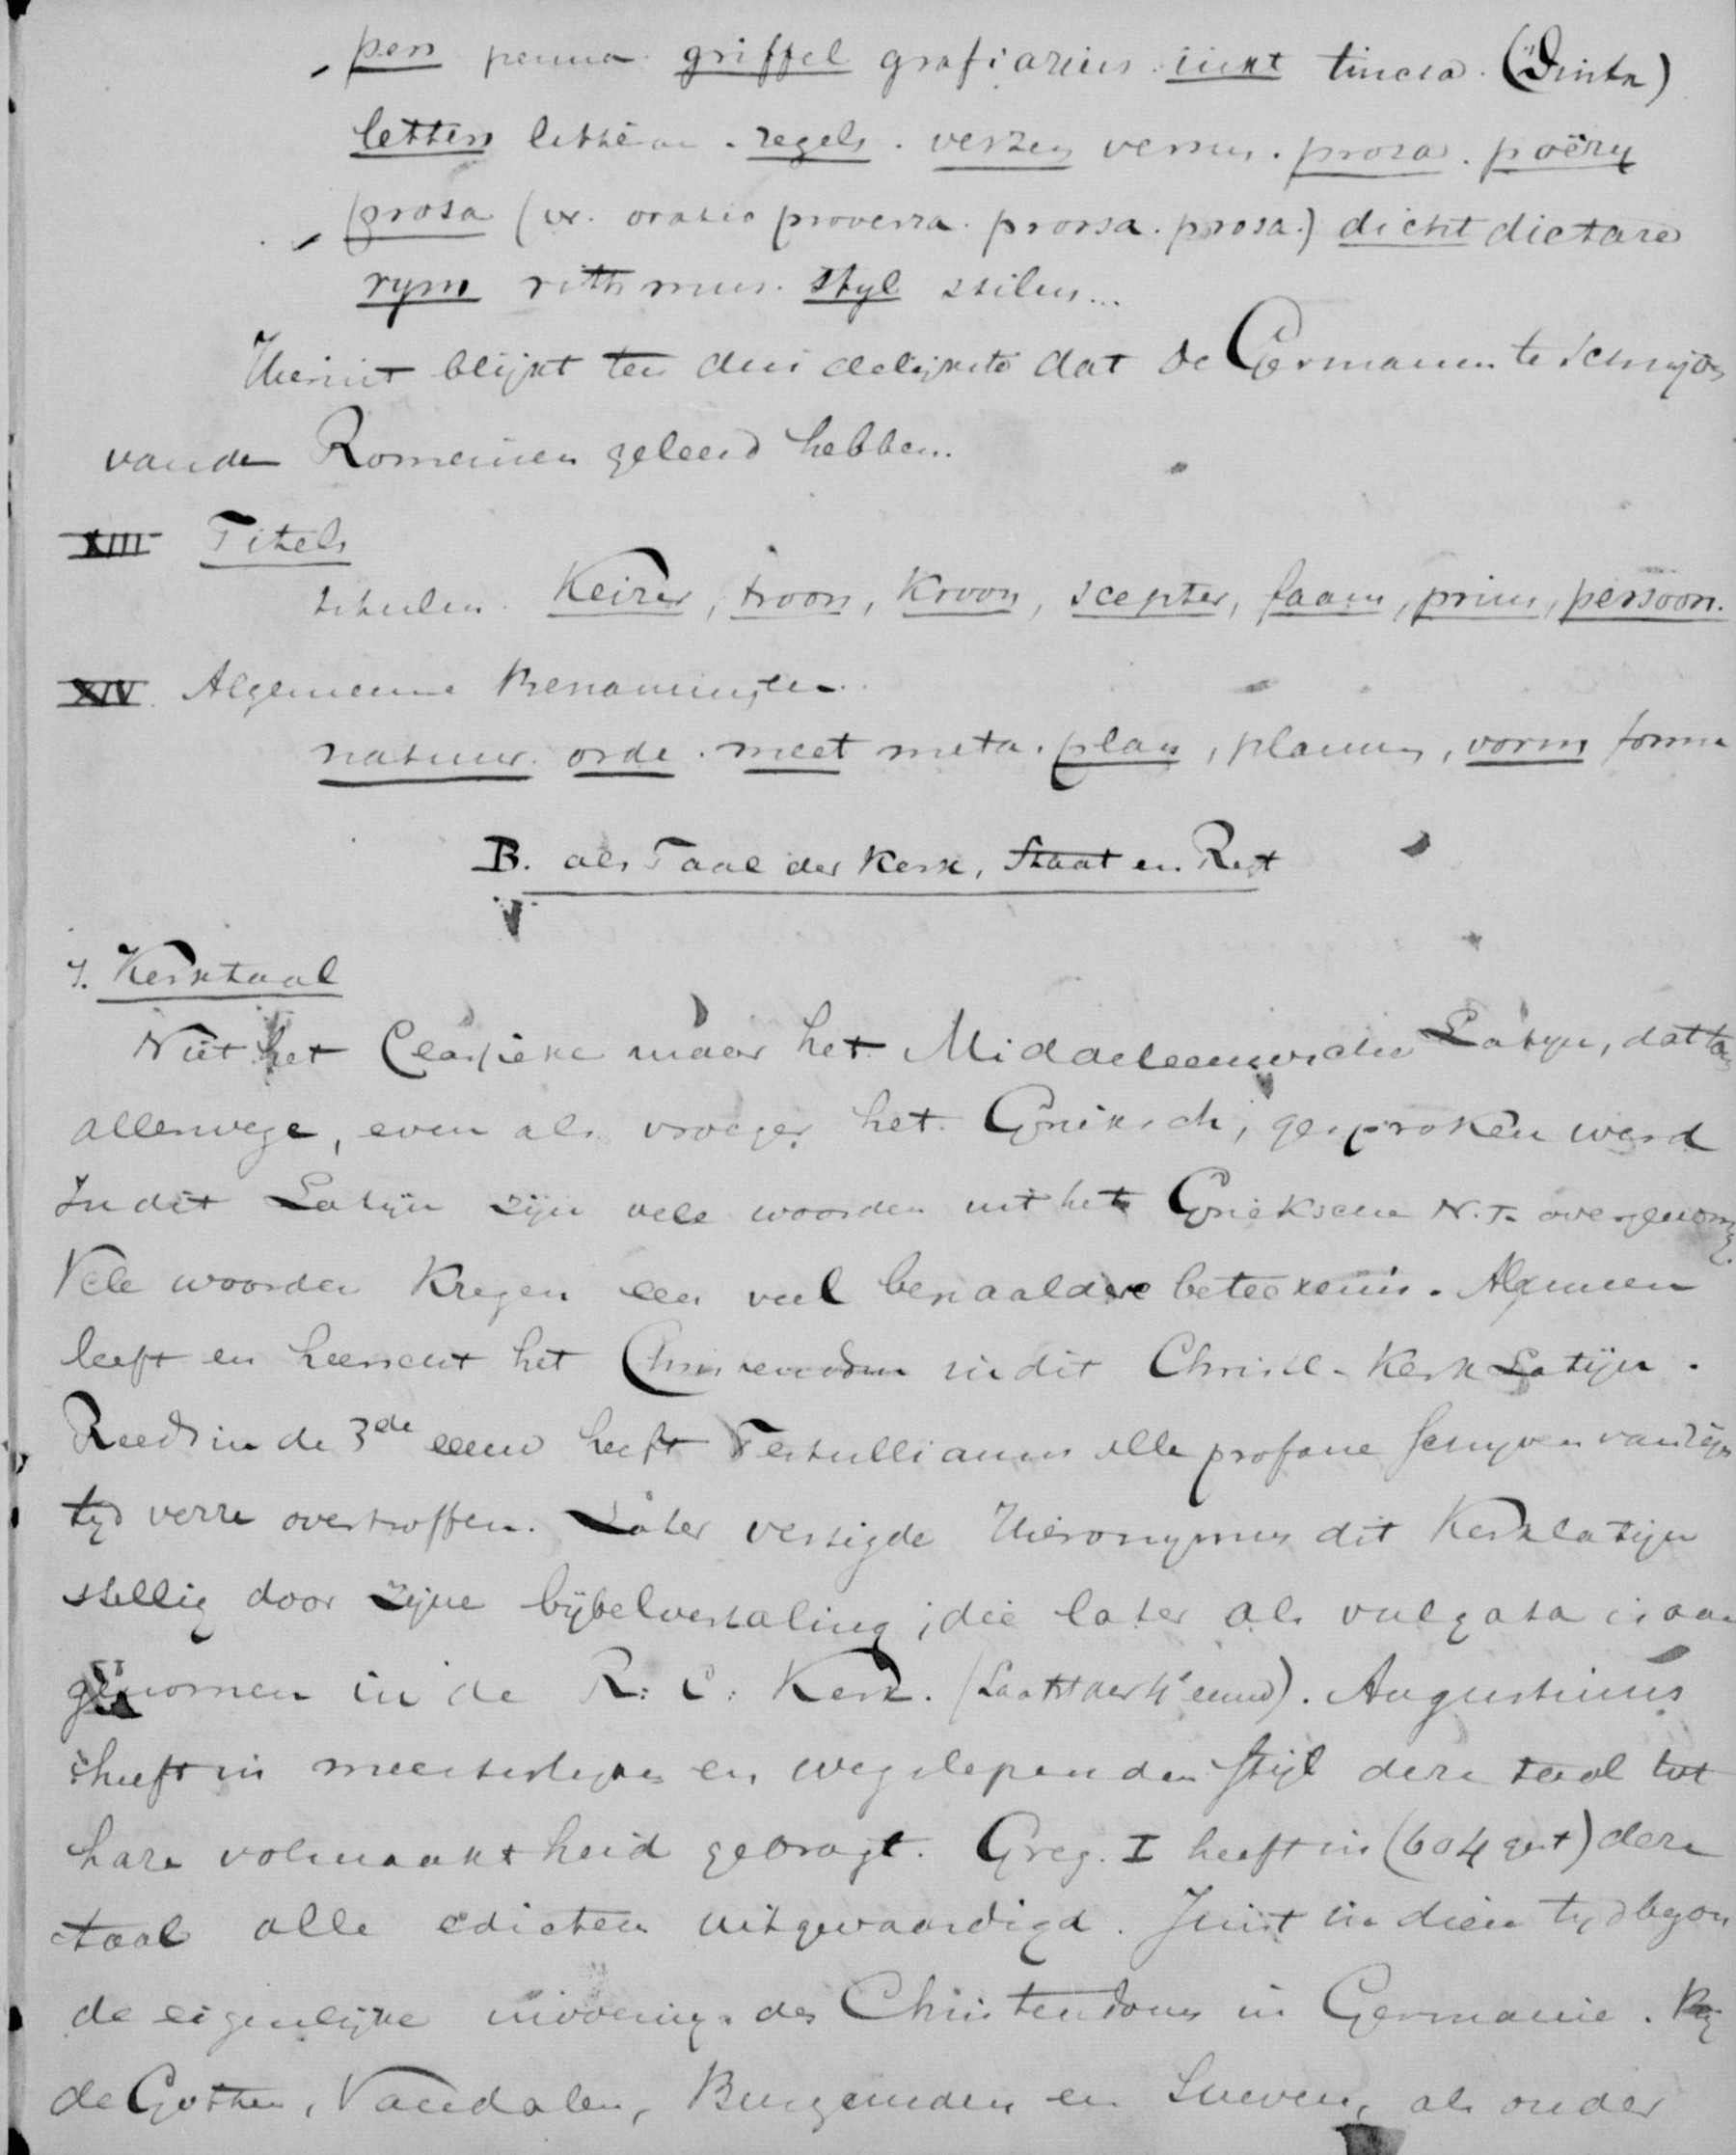 pen penna. griffel grafiarius. inkt tincta. (Dinte)
letters litterae. regels. verzen versus. prosa. poëzy
prosa (vr. oratio proversa. prorsa. prosa.) dicht dictare
rym rithmus. styl stilus...
Hieruit blijkt ten duidelijkste dat de Germanen te schrijven
van de Romeinen geleerd hebben.
XIII Titels
titulen. Keizer, troon, Kroon, scepter, faam, prins, persoon.
XIV. Algemeene Benamingen.
natuur. orde. meet meta. plan, planum, vorm forma
B. als Taal der Kerk, Staat en Regt
1. Kerktaal
Niet het Classieke maar het Middeleeuwsche Latyn, dat toen
allerwege, even als vroeger het Grieksch, gesproken werd
In dit Latijn zijn vele woorden uit het Grieksche N.T. overgenomen.
Vele woorden kregen een veel bepaaldere beteekenis. Algemeen
leeft en heerscht het Christendom in dit Christl. Kerk Latijn.
Reeds in de 3de eeuw heeft Tertullianus alle profane schryvers van zijn
tyd verre overtroffen. Later vestigde Hieronymus dit Kerklatijn
stellig door zijne bijbelvertaling, die later als vulgata is aan
genomen in de R: C: Kerk. (Laatst der 4e eeuw). Augustinus
heeft in meesterlyken en wegslependen stijl deze taal tot
hare volmaaktheid gebragt. Greg. I heeft in (604 gest) deze
taal alle edicten uitgevaardigd. Juist in dien tyd begon
de eigenlijke invoering des Christendoms in Germanie. By
de Gothen, Vandalen, Burgunden en Sueven, als onder